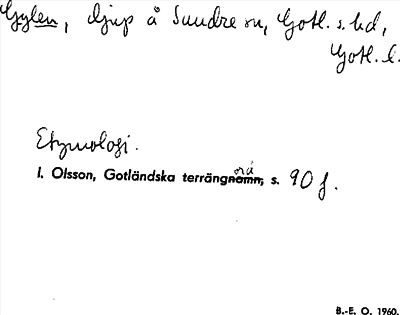 Gylen, djup å Sundre sn, Gotl. s. hd,
Gotl. l.
Etymologi.
I. Olsson, Gotländska terrängnamn, s. 90 f.
ord
B.-E. O. 1960.